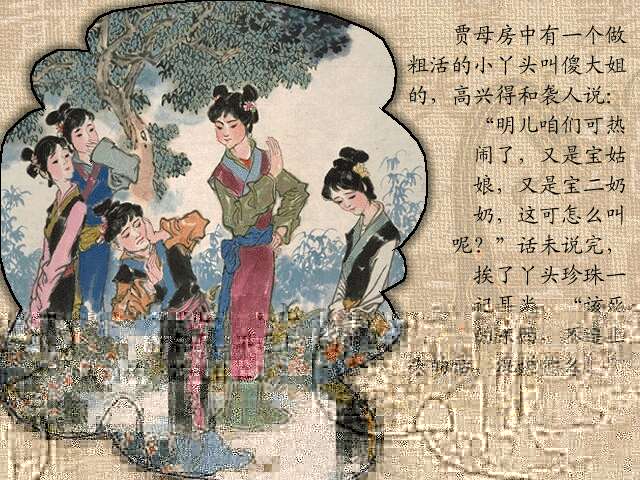 贾母房中有一个做
粗活的小丫头叫傻大姐
的，高兴得和袭人说：
“明儿咱们可热
闹了，又是宝姑
娘，又是宝二奶
奶，这可怎么叫
呢？”话未说完，
挨了丫头珍珠一
记耳光，“该死